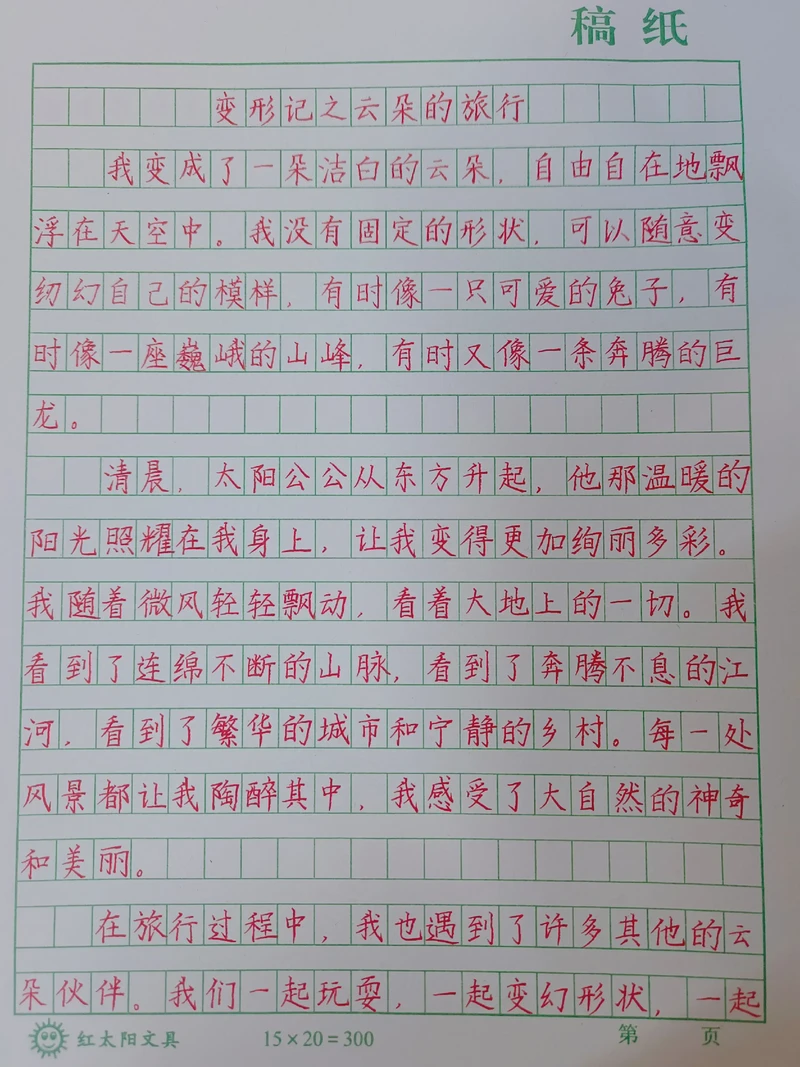 稿纸
变形记之云朵的旅行
我变成了一朵洁白的云朵，自由自在地飘
浮在天空中。我没有固定的形状，可以随意变
幻自己的模样，有时像一只可爱的兔子，有
时像一座巍峨的山峰，有时又像一条奔腾的巨
龙。
清晨，太阳公公从东方升起，他那温暖的
阳光照耀在我身上，让我变得更加绚丽多彩。
我随着微风轻轻飘动，看着大地上的一切。我
看到了连绵不断的山脉，看到了奔腾不息的江
河，看到了繁华的城市和宁静的乡村。每一处
风景都让我陶醉其中，我感受了大自然的神奇
和美丽。
在旅行过程中，我也遇到了许多其他的云
朵伙伴。我们一起玩耍，一起变幻形状，一起
红太阳文具 15×20=300 第 页